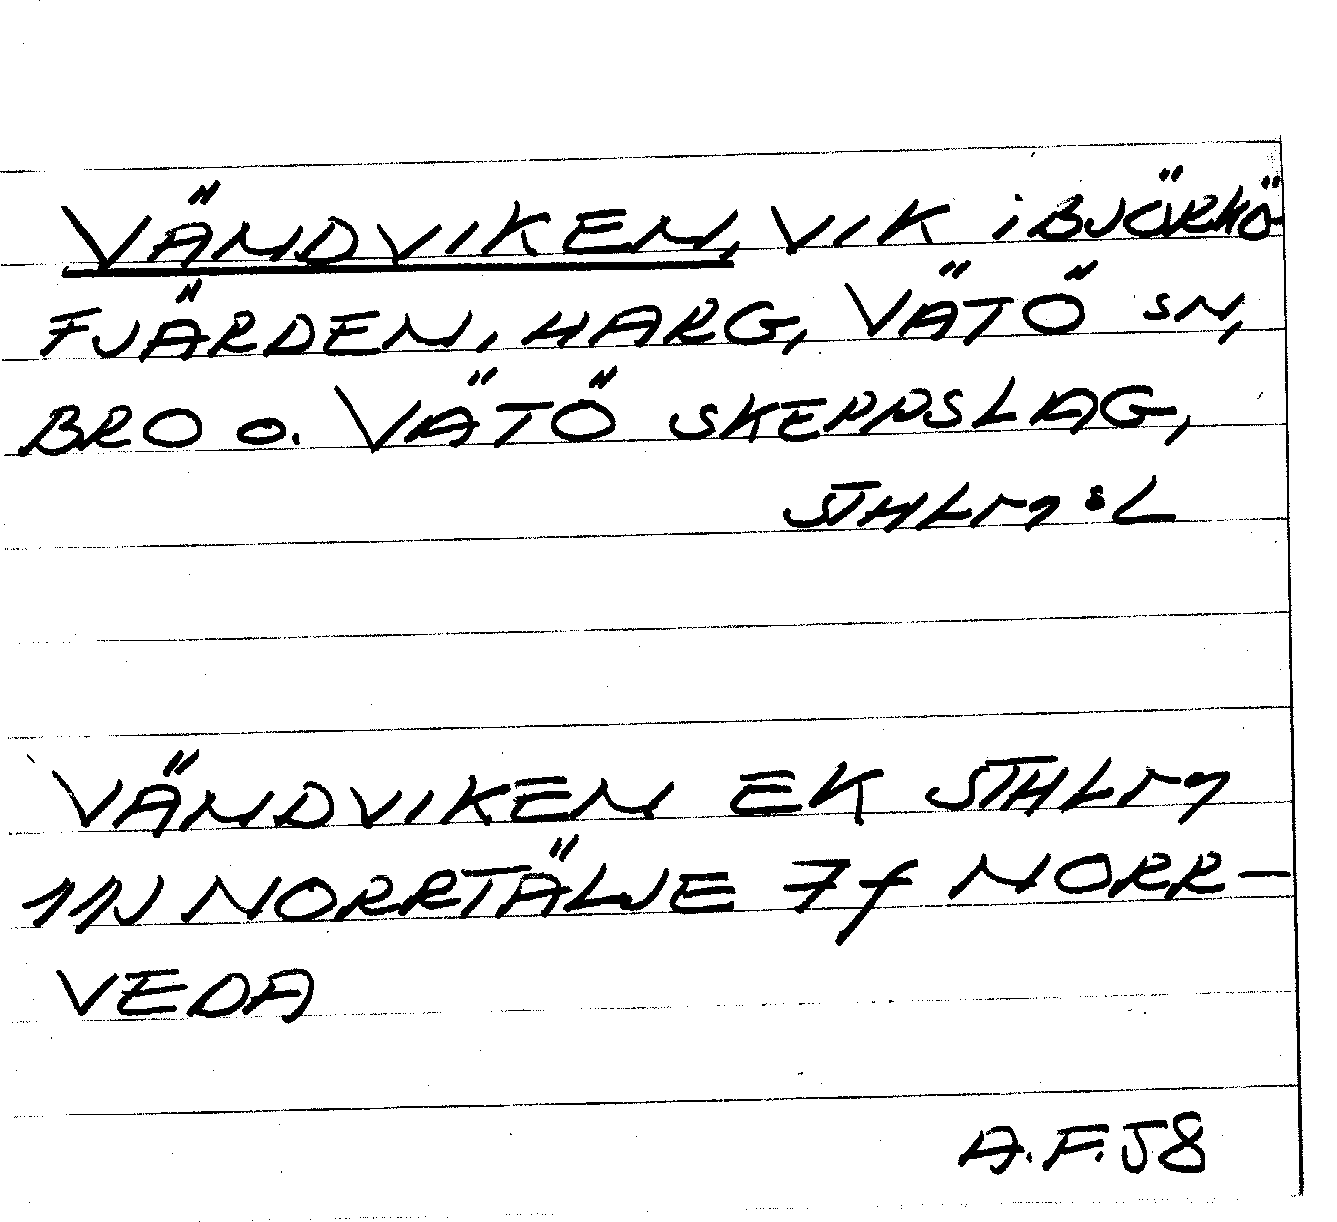 VÄNDVIKEN, VIK i BJÖRKÖ-
FJÄRDEN, HARG, VÄTÖ SN,
BRO o. VÄTÖ SKEPPSLAG,
STHLM:S L
VÄNDVIKEN EK STHLM
11J NORRTÄLJE 7f NORR-
VEDA
A.F. 58